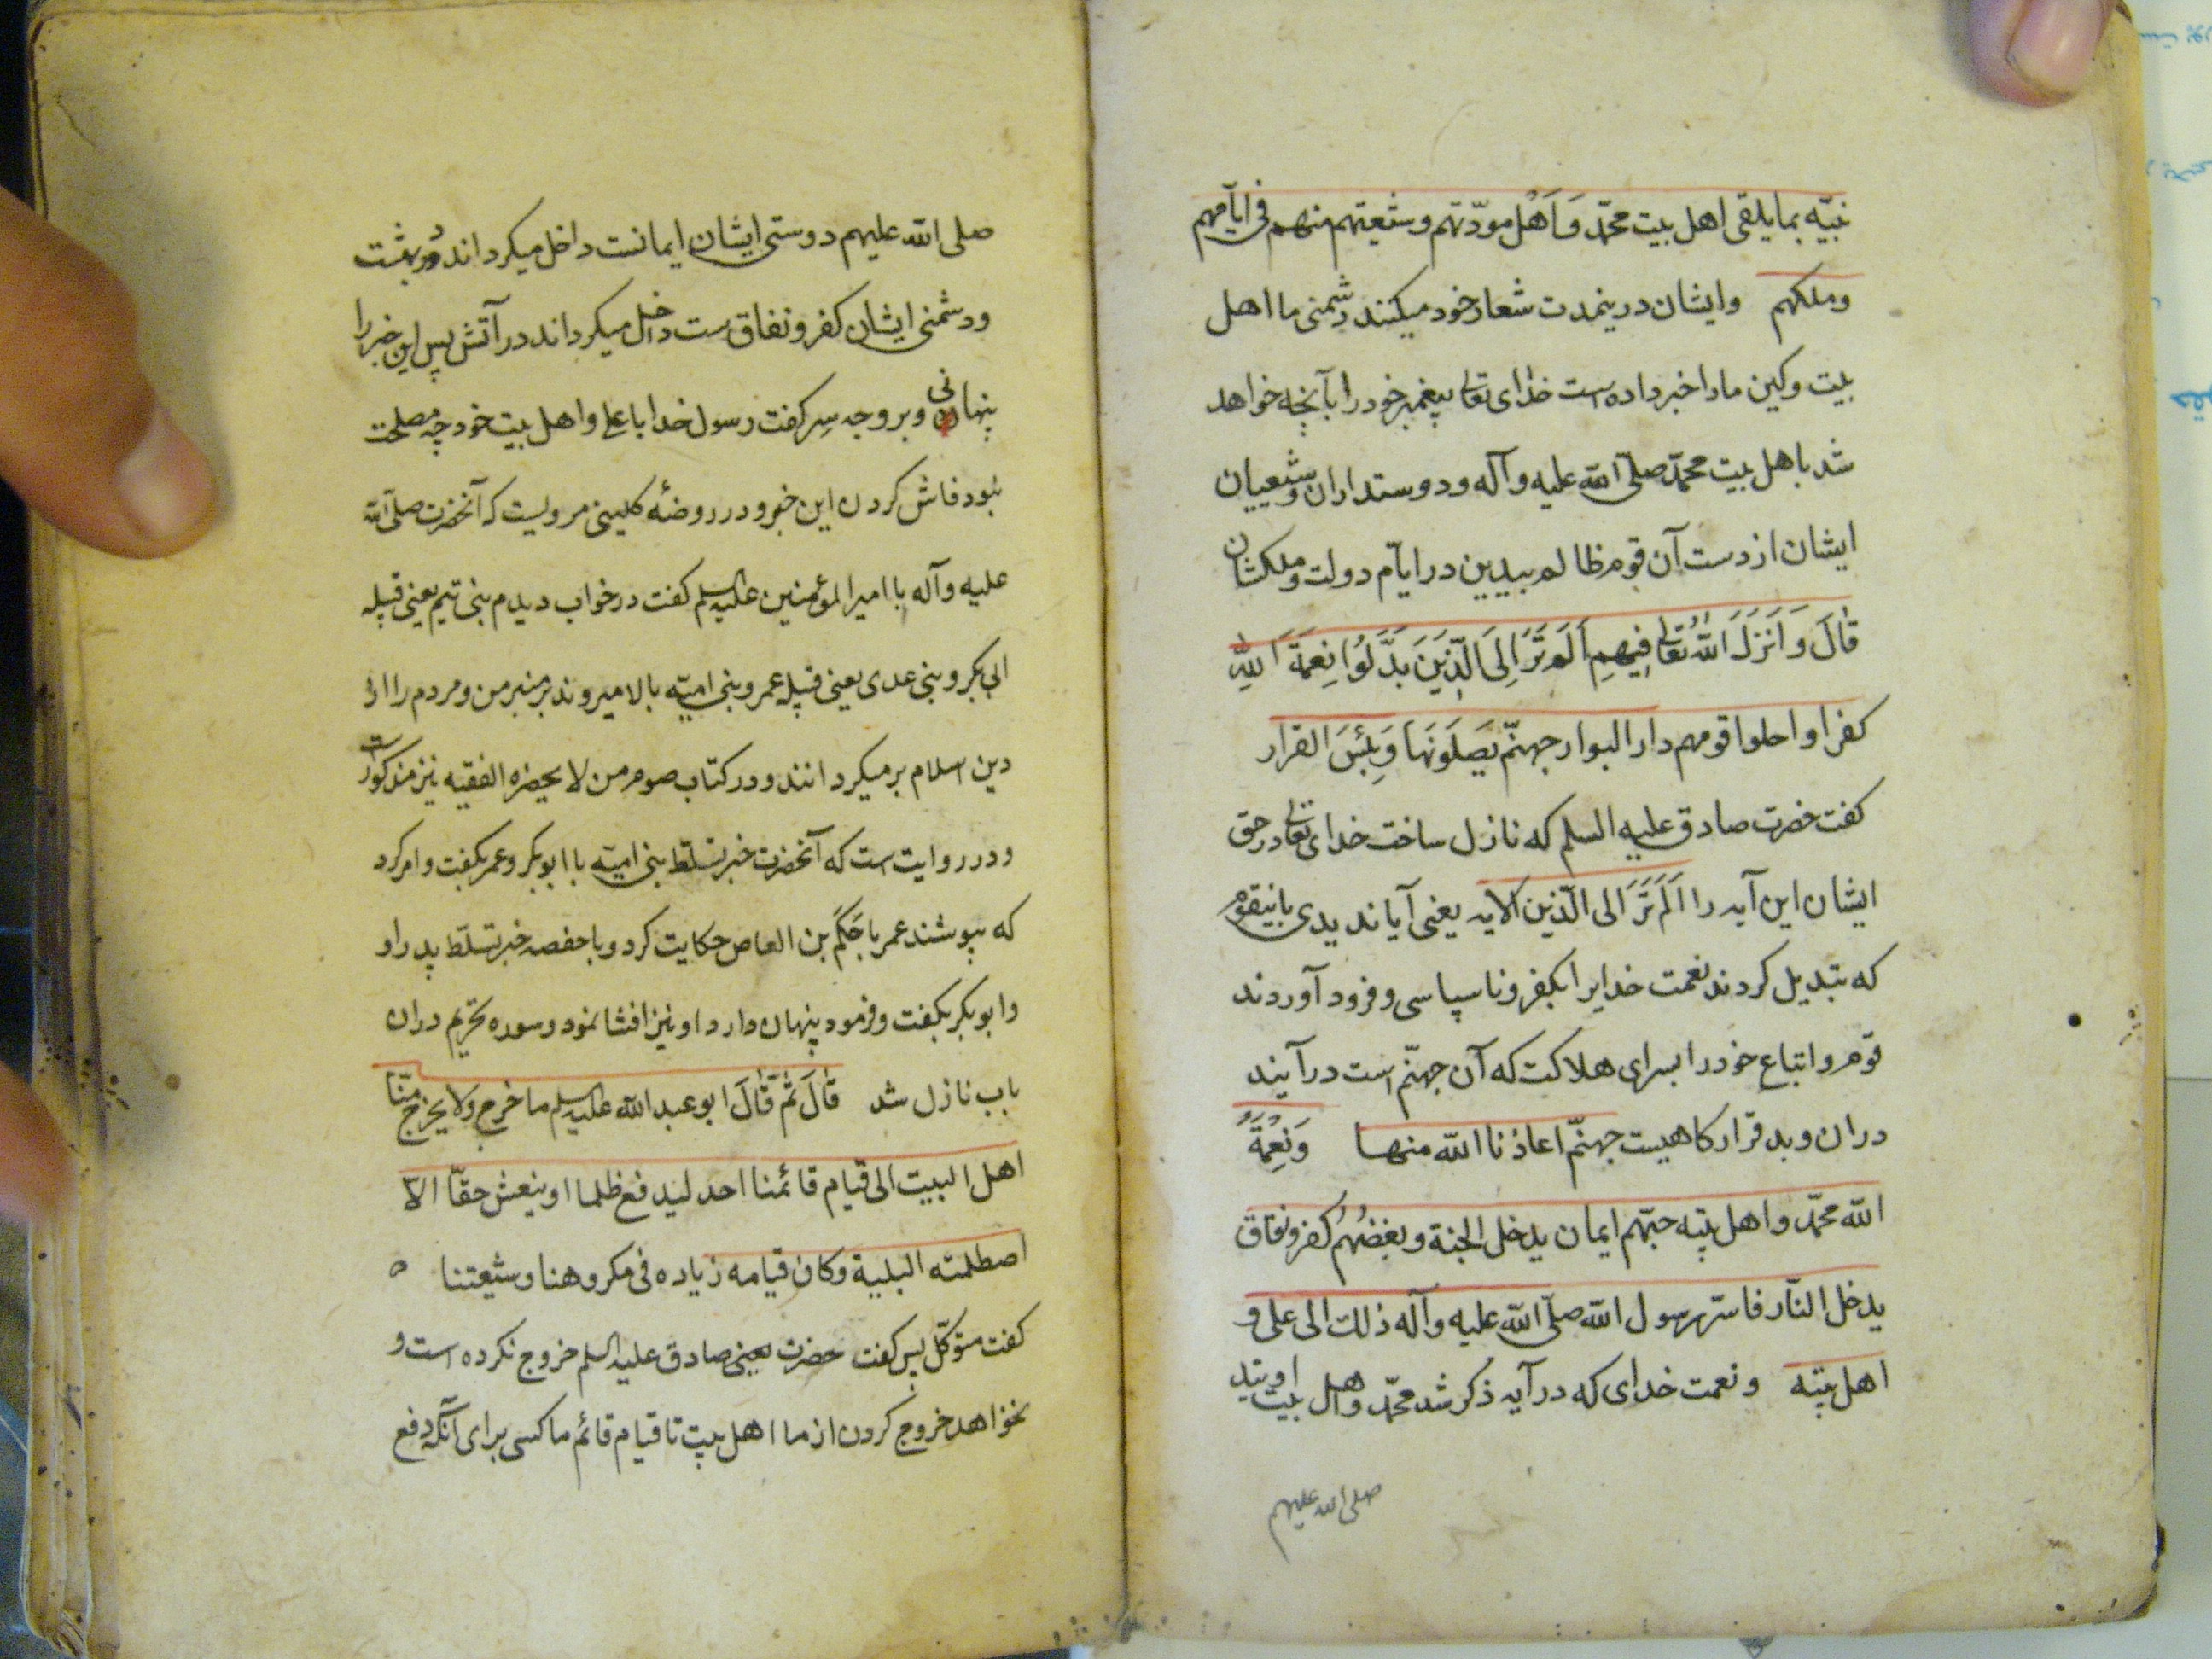 نبیّه بما یلقی اهل بیت محمّد وَاَهْل مودّتهم وشیعتهم منهم فی ایّامهم
وملکهم وایشان درینمدت شعار خود میکنند دشمنی ما اهل
بیت وکین ما را خبر داده است خدٰای تعالی پیغمبر خود را بآنچه خواهد
شد باهل بیت محمّد صلّی الله علیه وآله ودوستداران وشیعیان
ایشان از دست آن قوم ظالم بیدین در ایّام دولت وملکشان
قٰالَ وَاَنزَلَ اللّٰهُ تَعٰالی فِیهِم اَلَم تَرَ اِلَی الَّذِینَ بَدَّلُوا نِعمَةَ اللّٰهِ
کفرا واحلوا قومهم دار البوار جهنّم یَصلَونَها وَبِئسَ القرار
کفت حضرت صادق علیه السلم که نازل ساخت خدای تعالی در حق
ایشان این آیه را اَلَم تَرَ الی الّذین الآیه یعنی آیا ندیدی باینقوم
که تبدیل کردند نعمت خدایرا بکفر وناسپاسی وفرود آوردند
قوم واتباع خود را بسرای هلاکت که آن جهنّم است در آیند
دران وبد قرارکاهیست جهنّم اعاذنا الله منها وَنِعمَةُ
الله محمّد واهل بیته حبّهم ایمان یدخل الجنة وبغضُهُم کفر ونفاق
یدخل النّار فاسّر رسول الله صلّی الله علیه وآله ذلک الی علی و
اهل بیته ونعمت خدای که در آیه ذکر شد محمّد واهل بیت اویند
صلی الله علیهم
صلی الله علیهم دوستی ایشان ایمانست داخل میکرداند در بهشت
ودشمنی ایشان کفر ونفاق ست داخل میکرداند در آتش پس این خبر را
پنهانی وبر وجه سِر کفت رسول خدا با علی واهل بیت خود چه مصلحت
نبود فاش کردن این خبر ودر روضهٔ کلینی مرویست که آنحضرت صلّی الله
علیه وآله با امیر المؤمنین علیه السلم کفت در خواب دیدم بنی تیم یعنی قبیله
ابی بکر وبنی عدی یعنی قبیله عمر وبنی امیّه بالا میروند بر منبر من ومردم را از
دین اسلام بر میکردانند ودر کتاب صوم من لا یحضره الفقیه نیز مذکور است
ودر روایت ست که آنحضرت خبر تسلّط بنی امیّه با ابوبکر وعمر بکفت وامر کرد
که بپوشند عمر با حَکَم بن العاص حکایت کرد وبا حفصه خبر تسلّط پدر او
وابوبکر بکفت وفرمود پنهان دارد او نیز افشا نمود وسوره تحریم دران
باب نازل شد قٰالَ ثمّ قٰالَ ابو عبد الله علیه السلم ما خرج ولا یخرج منّا
اهل البیت الی قیام قائمنا احد لیدفع ظلما او ینعش حقّا الّا
اصطلمته البلیة وکان قیامه زیاده فی مکروهنا وشیعتنا ه
کفت متوکّل پس کفت حضرت یعنی صادق علیه السلم خروج نکرده است و
نخواهد خروج کردن از ما اهل بیت تا قیام قائم ما کسی برای آنکه دفع